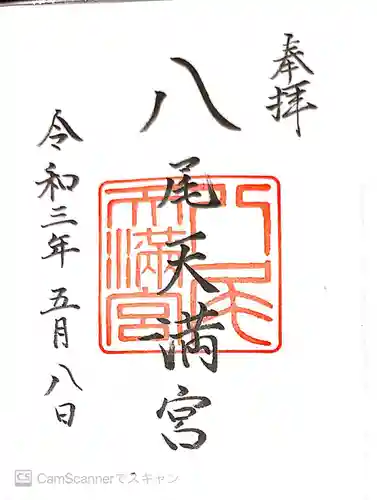 奉拝
八尾天満宮
八尾天満宮
令和三年 五月 八日
CS CamScannerでスキャン